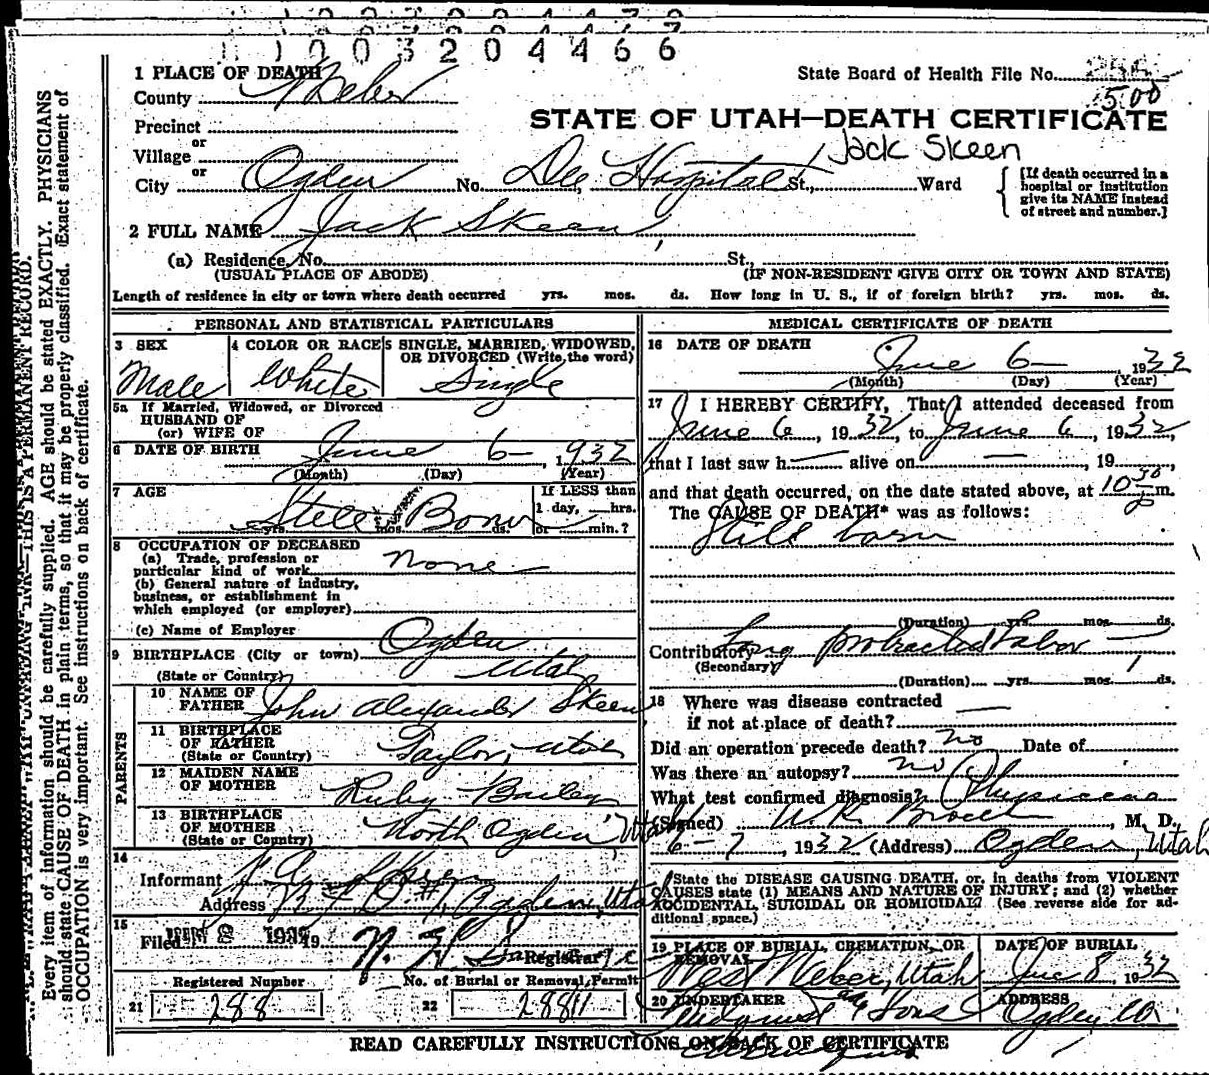 1003204466
1 PLACE OF DEATH
State Board of Health File No.
County Weber
500
Precinct
STATE OF UTAH—DEATH CERTIFICATE
or
Village
Jack Skeen
or
City Ogden No. Dee Hospital St., Ward
[If death occurred in a
hospital or institution
give its NAME instead
of street and number.]
2 FULL NAME Jack Skeen
(a) Residence, No. St.,
(USUAL PLACE OF ABODE) (IF NON-RESIDENT GIVE CITY OR TOWN AND STATE)
Length of residence in city or town where death occurred yrs. mos. ds. How long in U. S., if of foreign birth? yrs. mos. ds.
PERSONAL AND STATISTICAL PARTICULARS
3 SEX 4 COLOR OR RACE 5 SINGLE, MARRIED, WIDOWED,
OR DIVORCED (Write the word)
Male White Single
5a If Married, Widowed, or Divorced
HUSBAND OF
(or) WIFE OF
6 DATE OF BIRTH June 6—, 1932
(Month) (Day) (Year)
7 AGE If LESS than
1 day, hrs.
Still Born
yrs. mos. ds. or min.?
8 OCCUPATION OF DECEASED
(a) Trade, profession or
particular kind of work none
(b) General nature of industry,
business, or establishment in
which employed (or employer)
(c) Name of Employer
9 BIRTHPLACE (City or town) Ogden
(State or Country) Utah
PARENTS
10 NAME OF
FATHER John Alexander Skeen
11 BIRTHPLACE
OF FATHER
(State or Country) Taylor, Utah
12 MAIDEN NAME
OF MOTHER Ruby Bailey
13 BIRTHPLACE
OF MOTHER
(State or Country) North Ogden Utah
14
Informant J. A. Skeen
Address R.F.D. #1, Ogden, Utah
15
Filed 19 Registrar
Registered Number No. of Burial or Removal Permit
21 288 22 28811
MEDICAL CERTIFICATE OF DEATH
16 DATE OF DEATH
June 6—, 1932
(Month) (Day) (Year)
17 I HEREBY CERTIFY, That I attended deceased from
June 6, 1932, to June 6, 1932,
that I last saw h — alive on —, 19
and that death occurred, on the date stated above, at 10 30 p m.
The CAUSE OF DEATH* was as follows:
Still born
(Duration) yrs. mos. ds.
Contributory Long protracted labor
(Secondary)
(Duration) yrs. mos. ds.
18 Where was disease contracted
if not at place of death?
Did an operation precede death? no Date of
Was there an autopsy? no
What test confirmed diagnosis? Physician
(Signed) W.R. , M. D.
6-7, 1932 (Address) Ogden, Utah
State the DISEASE CAUSING DEATH, or, in deaths from VIOLENT
CAUSES state (1) MEANS AND NATURE OF INJURY; and (2) whether
ACCIDENTAL, SUICIDAL OR HOMICIDAL. (See reverse side for ad-
ditional space.)
19 PLACE OF BURIAL, CREMATION, OR
REMOVAL
DATE OF BURIAL
West Weber, Utah June 8, 1932
20 UNDERTAKER ADDRESS
& Sons Ogden
READ CAREFULLY INSTRUCTIONS ON BACK OF CERTIFICATE
Every item of information should be carefully supplied. AGE should be stated EXACTLY. PHYSICIANS
should state CAUSE OF DEATH in plain terms, so that it may be properly classified. Exact statement of
OCCUPATION is very important. See instructions on back of certificate.
THIS IS A PERMANENT RECORD.